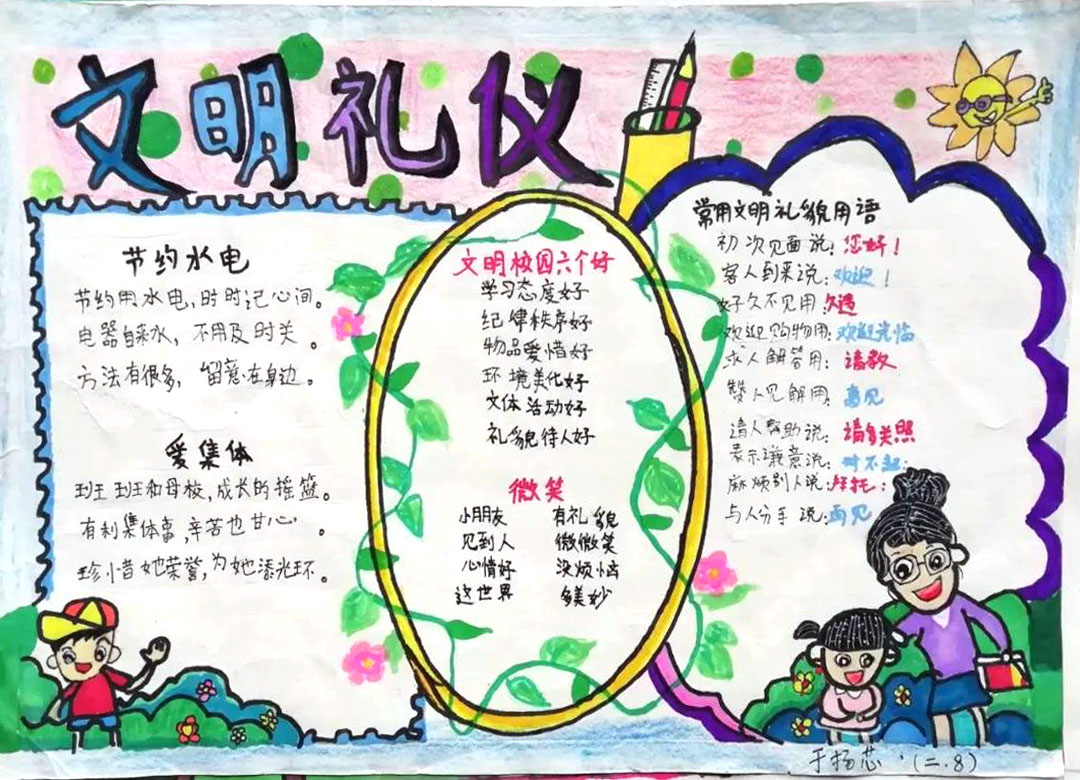 文明礼仪
节约水电
节约用水电,时时记心间。
电器自来水,不用及时关。
方法有很多,留意在身边。
爱集体
班班和母校,成长的摇篮。
有利集体事,辛苦也甘心。
珍惜她荣誉,为她添光环。
文明校园六个好
学习态度好
纪律秩序好
物品爱惜好
环境美化好
文体活动好
礼貌待人好
微笑
小朋友 有礼貌
见到人 微微笑
心情好 没烦恼
这世界 多美妙
常用文明礼貌用语
初次见面说:您好!
客人到来说:欢迎!
好久不见用:久违
欢迎购物用:欢迎光临
求人解答用:请教
赞人见解用:高见
请人帮助说:请多关照
表示歉意说:对不起:
麻烦别人说:拜托:
与人分手说:再见
于扬芯·(二.8)